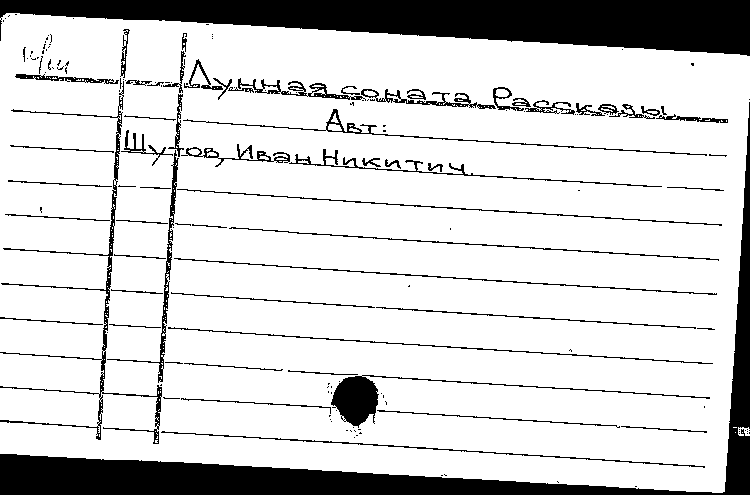 Лунная соната. Рассказы.
Авт:
Шутов, Иван Никитич.